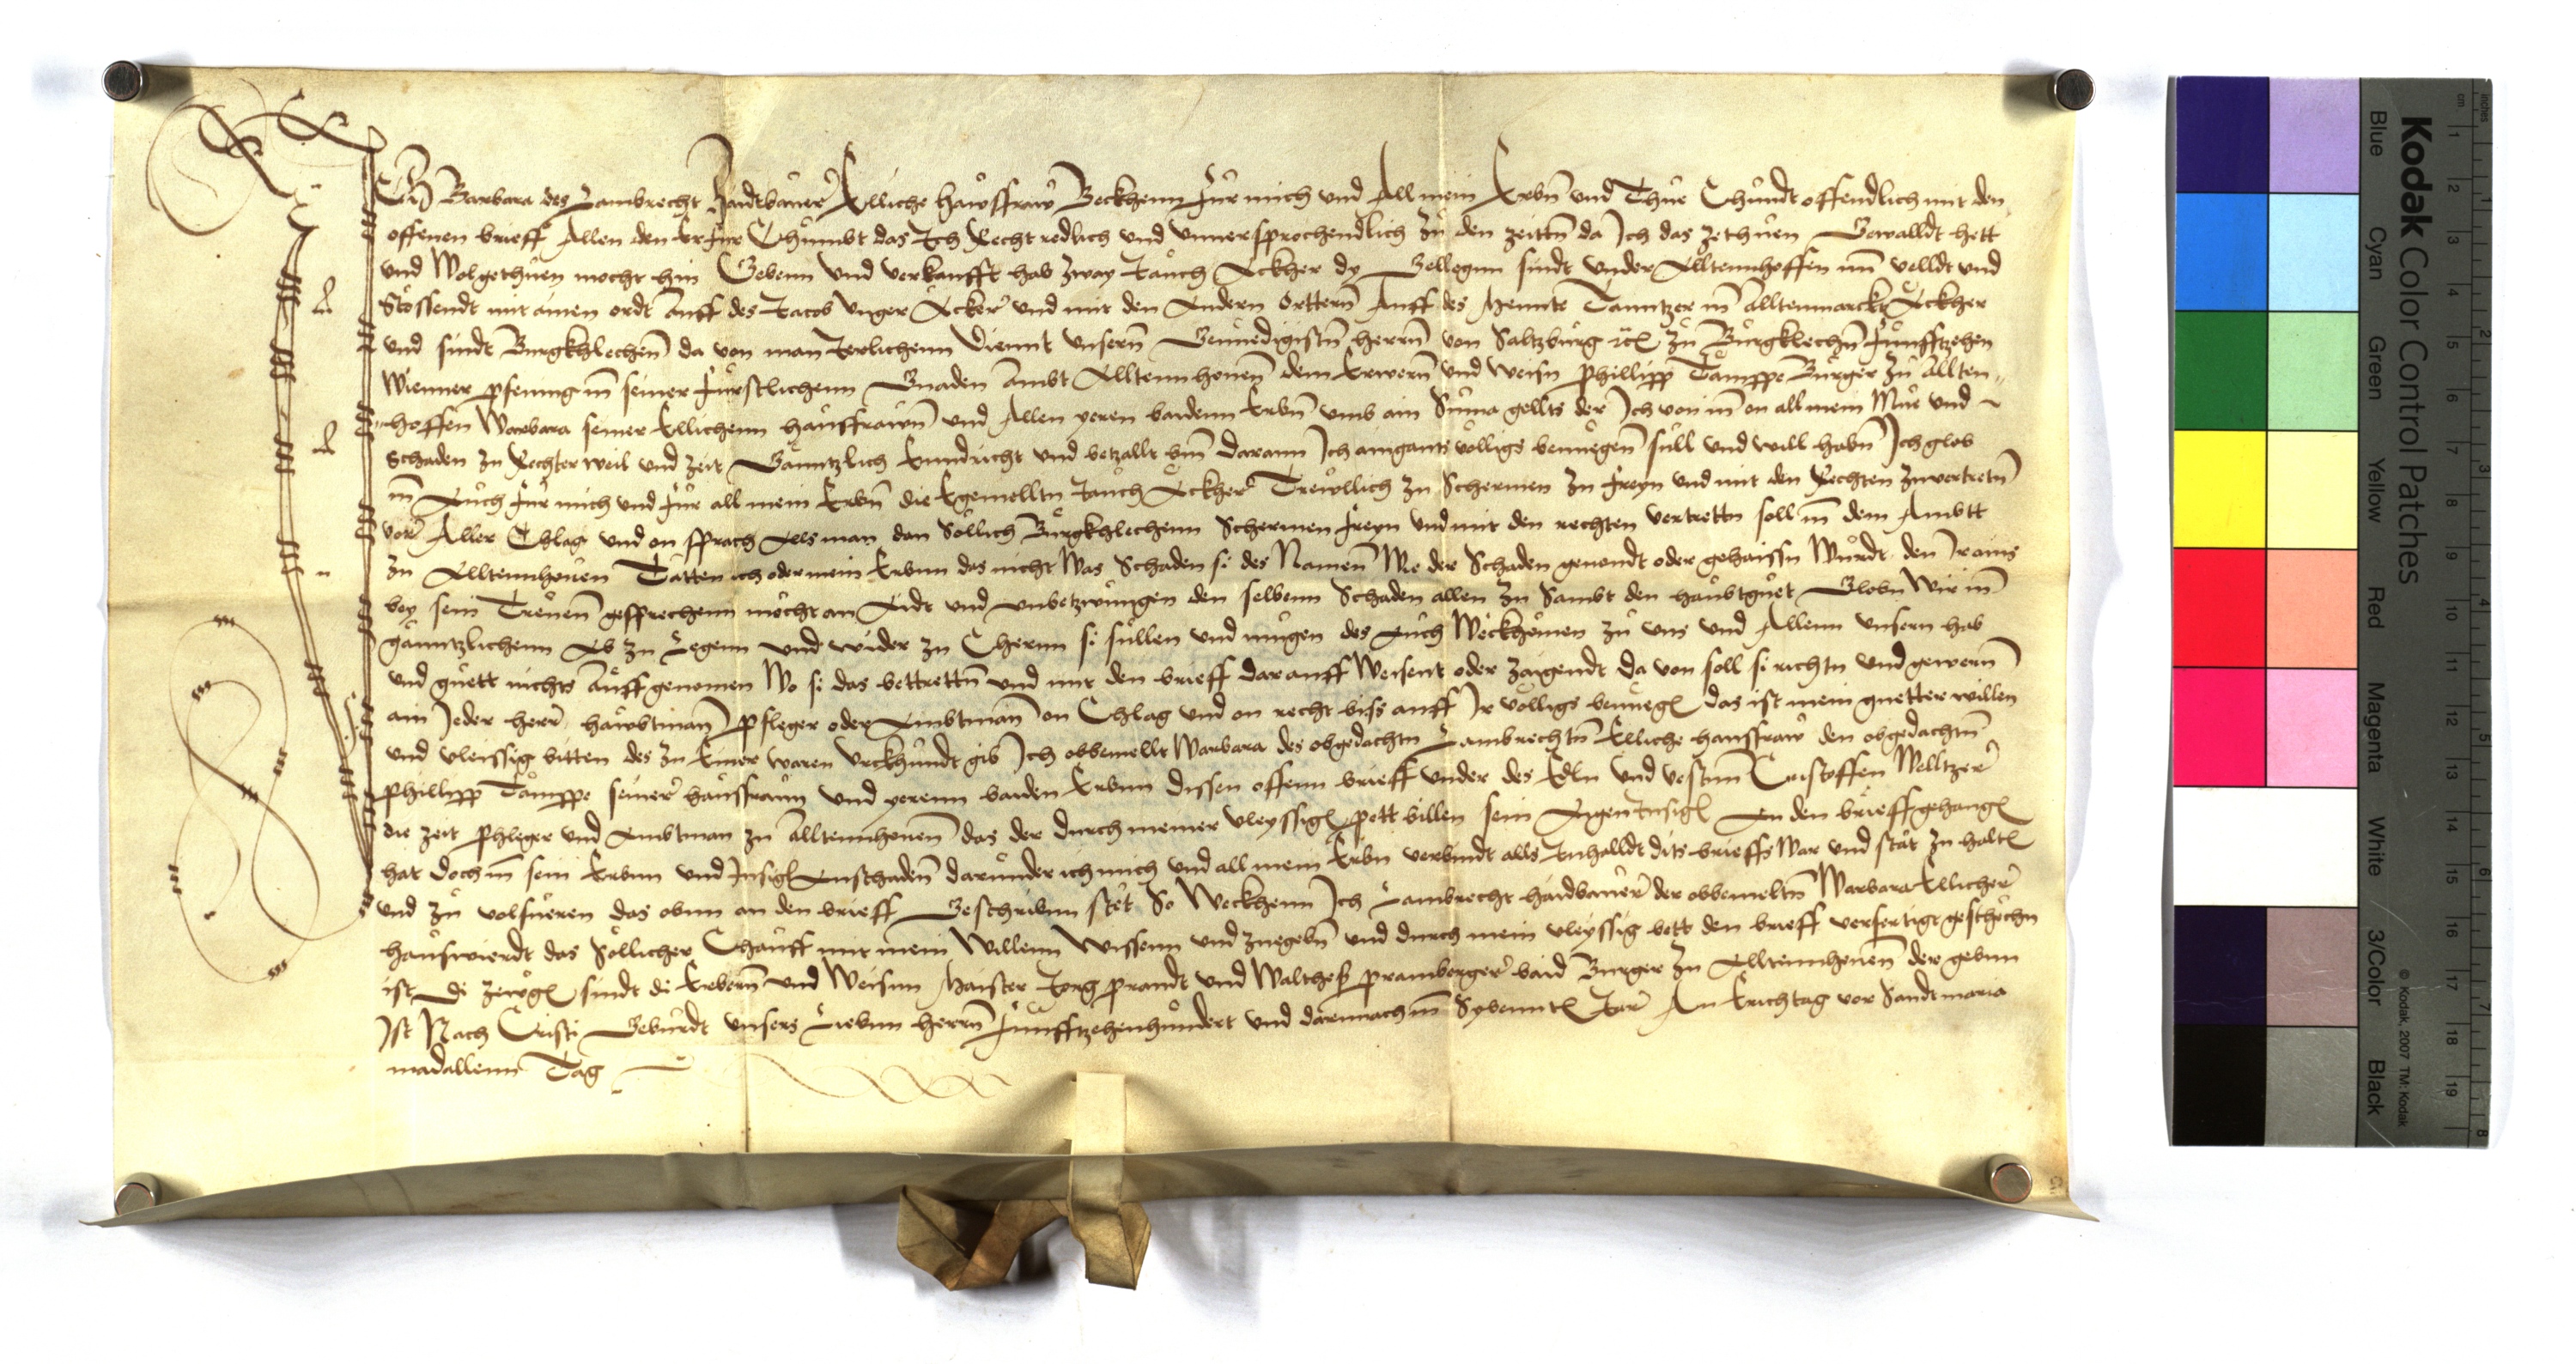 Ich Barbara des Lambrecht Haidtbaŭer Elliche haŵsfraŵ Beckhenn Fŭr mich und All mein Erbn̄ und Thŭe Chŭndt offendlich mit den
offenen brieff Allen den er fŭr Chŭmbt das Ich Recht redlich und Unnersprochendlich Zŭ den zeittn̄ da Ich das zethŭen Gewalldt hett
und Wolgethŭen mocht hin Gebenn und verkaufft hab zway Jaŭch Äckher dy Gellegnn sindt under Alltennhoffen im̄ velldt und
Stössendt mit ainen ordt Aŭff des Jacob Unger Äcker und mit den Andern örttern̄ Auff des Hennte Tanntzer in̄ Alltenmarckt Äckher
und sindt Burgkhlechen̄ da von man Jerlichenn Diennt Unsern̄ Gennedigistn̄ herrn̄ von Saltzbŭrg etc Zŭ Bŭrgklechn̄ Fŭnfftzehen
Wienner pfening in̄ seiner Fŭrstlichenn Gnaden Ambt Alltennhouen̄ dem Erwern̄ und Weisn Phillipp Tamppe Bŭrger Zŭ Allten
hoffen Warbara seiner Ellichenn haŭsfraẅn̄ und Allen yeren baidenn Erbn̄ umb ain Sŭma gellts der Ich von in̄ on all mein Mŭe und
Schaden zu Rechter weil und zeit Gänntzlich enndricht und betzallt bin̄ darann Ich ain gants völligs bennŭegen̄ sŭll und will habn̄ Ich glob
in̄ Aŭch Fŭr mich und Fŭr all mein Erbn̄ die Egemelltn Jaŭch Äckher Treŵllich zu Schermen zu Freyn und mit den Rechten zuvertretn̄
vor Aller Chlag und on sprach Als man dan Söllich Bŭrgkhlechenn Schermen Freyn und mit den rechten vertrettn soll in̄ dem Ambtt
zu Alltennhouen Tätten ich oder mein Erbnn das nicht Was Schaden si des Namen̄ Wie der Schaden genondt oder gehaissn Wŭrdt den Ir ains
bey sein Treŵen̄ gesprechenn möcht an Aidt und unbetzwŭngen den selbenn Schaden allen Zŭ Sambt den haŭbtgŭet Globn Wir in̄
gänntzlichenn Ab zu Legenn und wider zu Chernn si süllen und mŭgen des Aŭch Weckhŏmen zŭ uns und Allenn unsern hab
und gŭett nichts Aŭff genomen Wo si das bettrettn̄ und mit den brieff darauff Weisent oder zaigendt da von soll si richtn und gewern̄
ain Jeder herr haŵbtman̄ Pfleger oder Ambtman̄ on Chlag und on recht biss auff Ir völligs bennŭegn das ist mein guetter willen
und vleissig bitten des zu Einer waren Urckhŭndt gib Ich obbemellt Warbara des obgedachtn Lambrechtn̄ Elliche hausfraŵ den obgedachtn̄
Phillipp Tamppe seiner haŭsfraŭn und yerenn baiden Erbnn dissen offenn brieff under des Edln und vestnn Cristoffen Welltzer
die zeit Phleger und Ambtman zŭ Alltennhouen̄ das der dŭrch meiner vleyssign pett billen sein Aigen Insigl An den brieff gehangn
hat doch in̄ sein Erbnn und Insigl Anschaden̄ darŭnder ich mich und all mein Erbn verbindt alls Inhalldt dits brieffs War und stät zu haltn
und zŭ volfŭeren das obnn an den brieff Geschribnn stet So Weckhenn Ich Lambrecht haidbaŭer der obbemeltn̄ Warbara Ellicher
haŭswierdt das Söllicher Chaŭff mit mein Willenn Wissenn und zŭegebn̄ und durch mein vleyssig bett den brieff verfertigt geschechn
ist Di zeŵgn sindt di Erbern̄ und Weisnn Maister Jorg prandt und Walthesr pramberger baid Burger zŭ Alltennhouen̄ der gebnn
Ist Nach Cristi Gebŭrdt Unsers Liebnn herrn̄ Fŭnfftzehenhŭndert und darnnach in̄ Sybenntn Jar An Erichtag vor Sandt maria
madallenn Tag
Kodak Color Control Patches
Blue Cyan Green Yellow Red Magenta White 3/Color Black
© Kodak, 2007 TM: Kodak
cm 1 2 3 4 5 6 7 8 9 10 11 12 13 14 15 16 17 18 19
inches 1 2 3 4 5 6 7 8